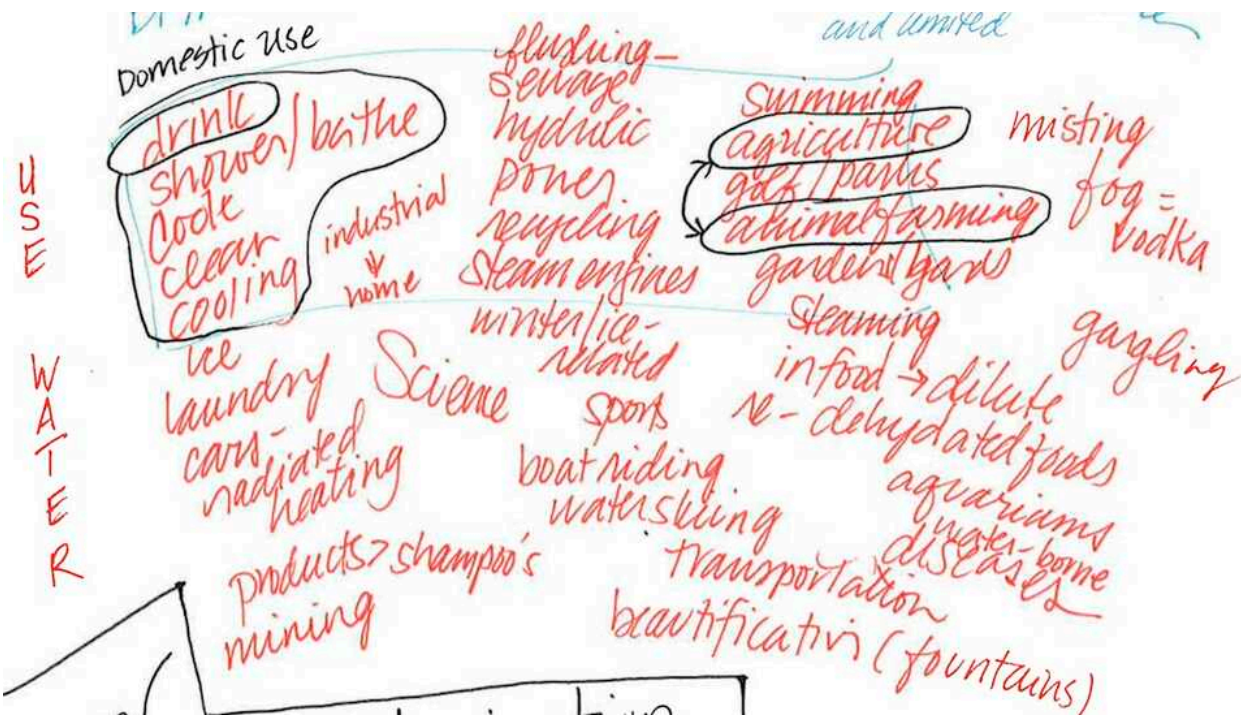 and limited
Domestic use
USE WATER
drink
shower/bathe
Cook
clean
cooling
ice
laundry
cars-
radiated
heating
products>shampoo's
mining
industrial
home
Science
flushing-
sewage
hydrilic
power
recycling
steam engines
winter/ice-
related
sports
boat riding
water skiing
transportation
beautification (fountains)
swimming
agriculture
golf/parks
animal farming
garden/yards
steaming
in food → dilute
re-dehydated foods
aquariums
water-borne
diseases
misting
fog =
vodka
gargling